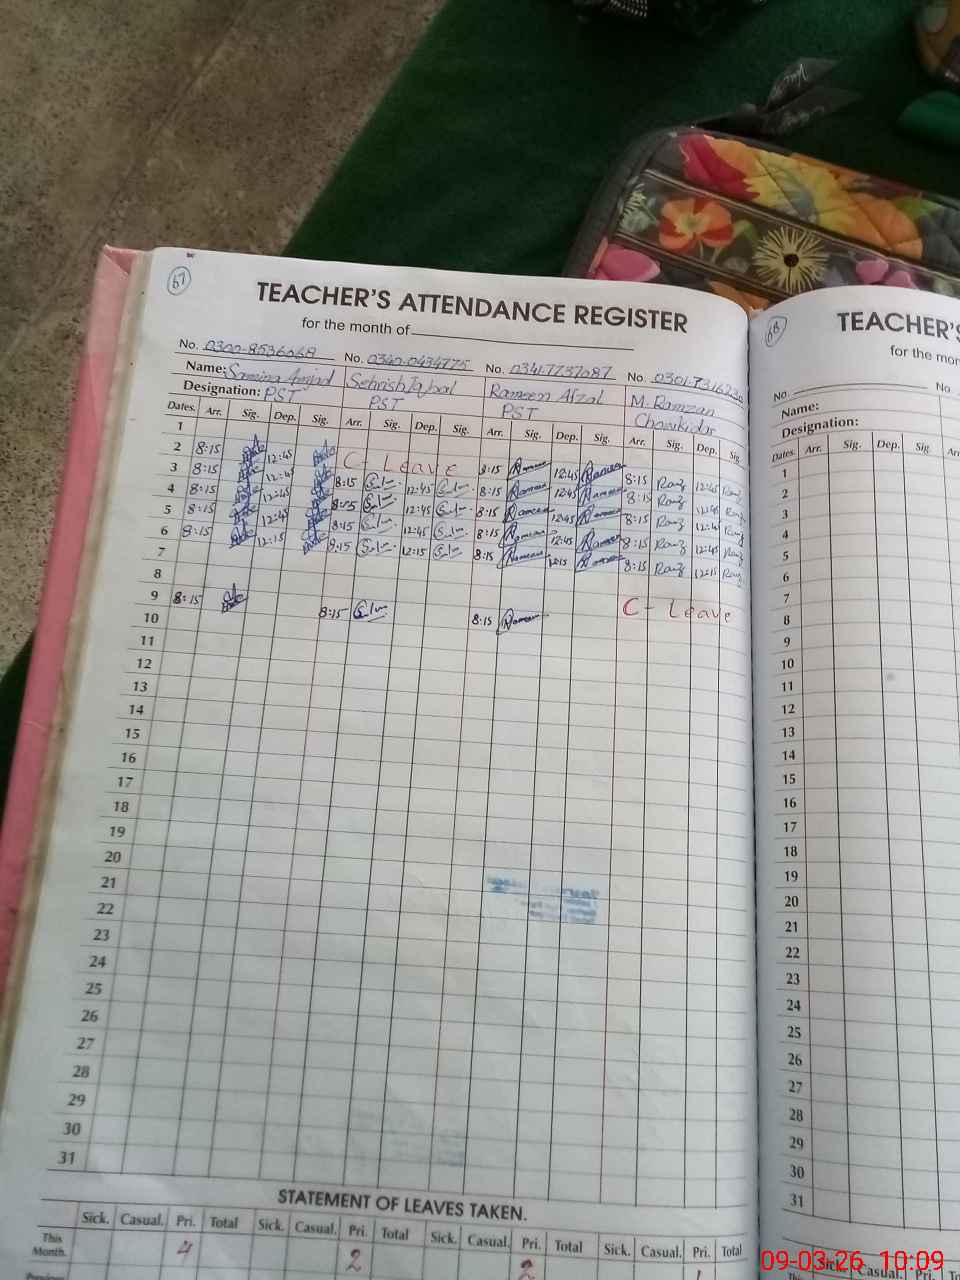 67
TEACHER'S ATTENDANCE REGISTER
for the month of
No. 0300-8536068 No. 0340-0434775 No. 0341-7737087 No. 0301-7316230
Name: Samina Amjad Sehrish Iqbal Rameen Afzal M. Ramzan
Designation: PST PST PST Chowkidar
Dates. Arr. Sig. Dep. Sig. Arr. Sig. Dep. Sig. Arr. Sig. Dep. Sig. Arr. Sig. Dep. Sig.
1
2 8:15 12:45 C- Leave 8:15 Rameen 12:45 Rameen 8:15 Ramz 12:45 Ramz
3 8:15 12:45 8:15 12:45 8:15 Rameen 12:45 Rameen 8:15 Ramz 12:45 Ramz
4 8:15 12:45 8:15 12:45 8:15 Rameen Rameen 8:15 Ramz 12:45 Ramz
5 8:15 12:45 8:15 12:45 8:15 Rameen 12:45 Rameen 8:15 Ramz 12:45 Ramz
6 8:15 12:15 8:15 12:15 8:15 Rameen 12:15 Rameen 8:15 Ramz 12:15 Ramz
7
8
9 8:15 8:15 8:15 Rameen C- Leave
10
11
12
13
14
15
16
17
18
19
20
21
22
23
24
25
26
27
28
29
30
31
STATEMENT OF LEAVES TAKEN.
Sick. Casual. Pri. Total Sick. Casual. Pri. Total Sick. Casual. Pri. Total Sick. Casual. Pri. Total
This Month. 4 2 2 1
Previous
68
TEACHER'S
for the mon
No. No.
Name:
Designation:
Dates. Arr. Sig. Dep. Sig. Arr
1
2
3
4
5
6
7
8
9
10
11
12
13
14
15
16
17
18
19
20
21
22
23
24
25
26
27
28
29
30
31
Sick. Casual. Pri.
09-03-26 10:09